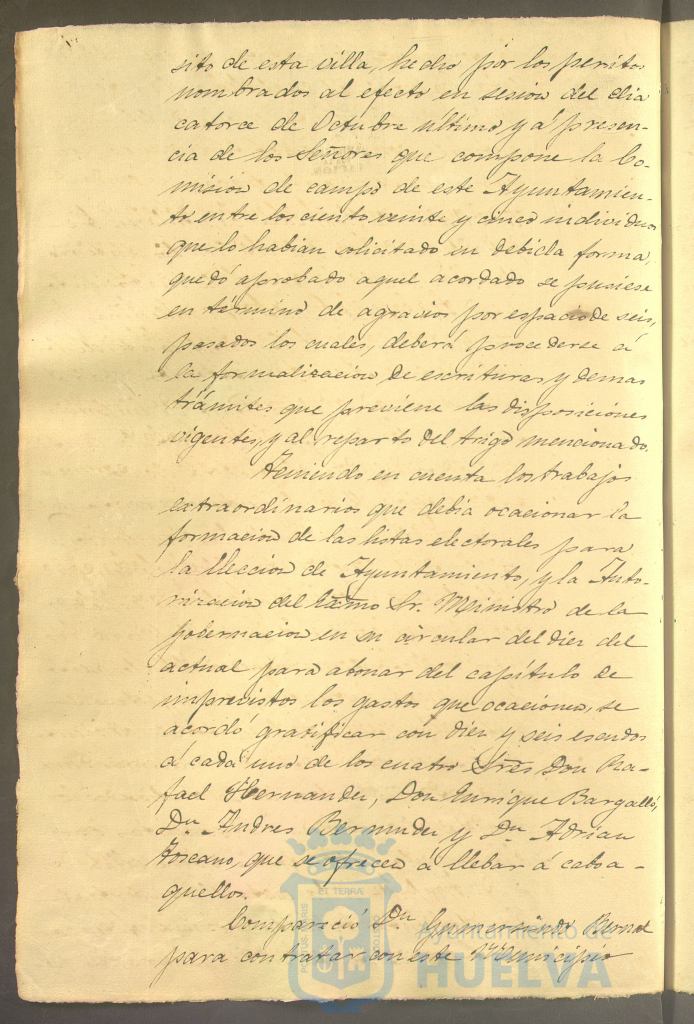 sito de esta villa, hecho por los peritos
nombrados al efecto en sesion del dia
catorce de Octubre último, y á presen-
cia de los Señores que compone la Co-
mision de campo de este Ayuntamien-
to, entre los ciento veinte y cinco individuos
que lo habian solicitado en debida forma,
quedó aprobado aquel acordado se pusiese
en término de agravios por espacio de seis,
pasados los cuales, deberá procederse á
la formalizacion de escrituras y demas
trámites que previene las disposiciones
vigentes, y al reparto del trigo mencionado.
Teniendo en cuenta los trabajos
extraordinarios que debia ocacionar la
formacion de las listas electorales para
la Eleccion de Ayuntamiento, y la Auto-
rizacion del Sr. Ministro de la
gobernacion en su circular del diez del
actual para abonar del capítulo de
imprevistos los gastos que ocacionen, se
acordó gratificar con diez y seis escudos
á cada uno de los cuatro Sres Don Ra-
fael Hernandez, Don Enrique Bargalló,
Dn Andres Bermudez y Dn Adrian
Toscano, que se ofrecen á llebar á cabo a-
quellos.
Compareció Dn Gumersindo Bernal
para contratar con este Municipio
PORTUS MARIS
ET TERRAE
CUSTODIA
Ayuntamiento de
HUELVA